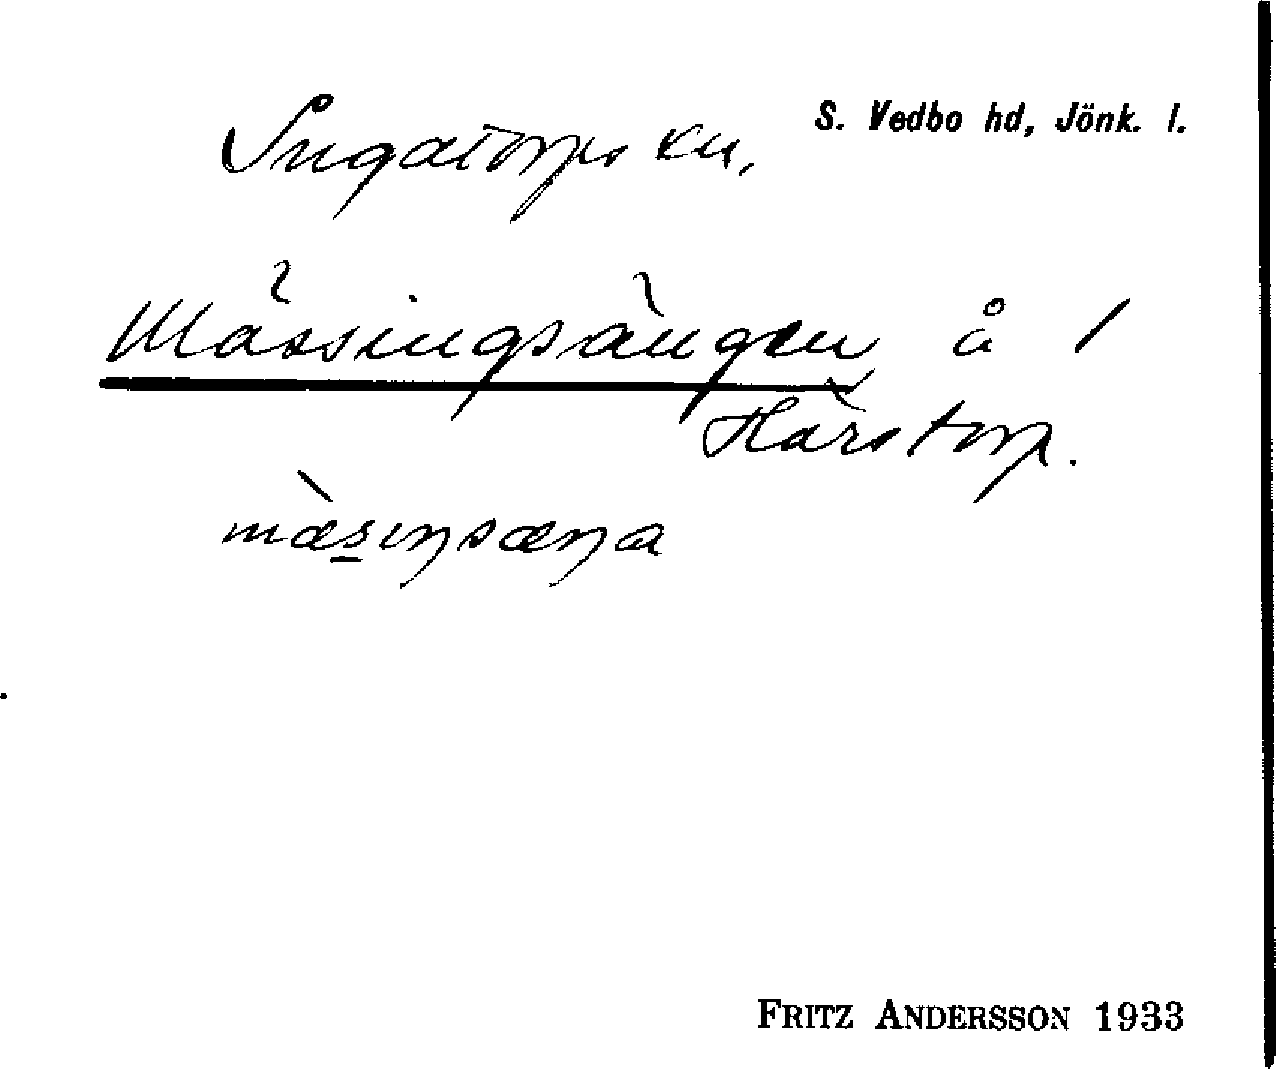 Ingatorps sn, S. Vedbo hd, Jönk. l.
Mässingsängen å 1
Härstorp.
mæ̀siŋsæŋa
FRITZ ANDERSSON 1933